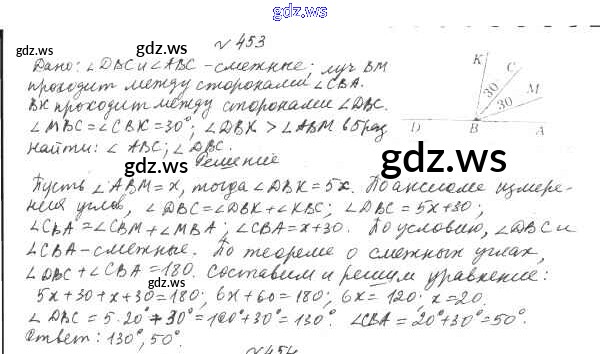 gdz.ws
№ 453
Дано: ∠DBC и ∠ABC - смежные; луч BM
проходит между сторонами ∠CBA.
BK проходит между сторонами ∠DBC.
∠MBC = ∠CBK = 30°; ∠DBK > ∠ABM в 5 раз
найти: ∠ABC; ∠DBC.
Решение
K C M
30 30
D B A
Пусть ∠ABM = x, тогда ∠DBK = 5x. По аксиоме измере-
ния углов, ∠DBC = ∠DBK + ∠KBC; ∠DBC = 5x+30;
∠CBA = ∠CBM + ∠MBA; ∠CBA = x+30. По условию, ∠DBC и
∠CBA - смежные. По теореме о смежных углах,
∠DBC + ∠CBA = 180. Составим и решим уравнение:
5x+30+x+30=180; 6x+60=180; 6x=120; x=20.
∠DBC = 5·20°+30°=100°+30°=130°. ∠CBA=20°+30°=50°.
Ответ: 130°, 50°.
№ 454
gdz.ws
gdz.ws
gdz.ws
gdz.ws
gdz.ws
gdz.ws